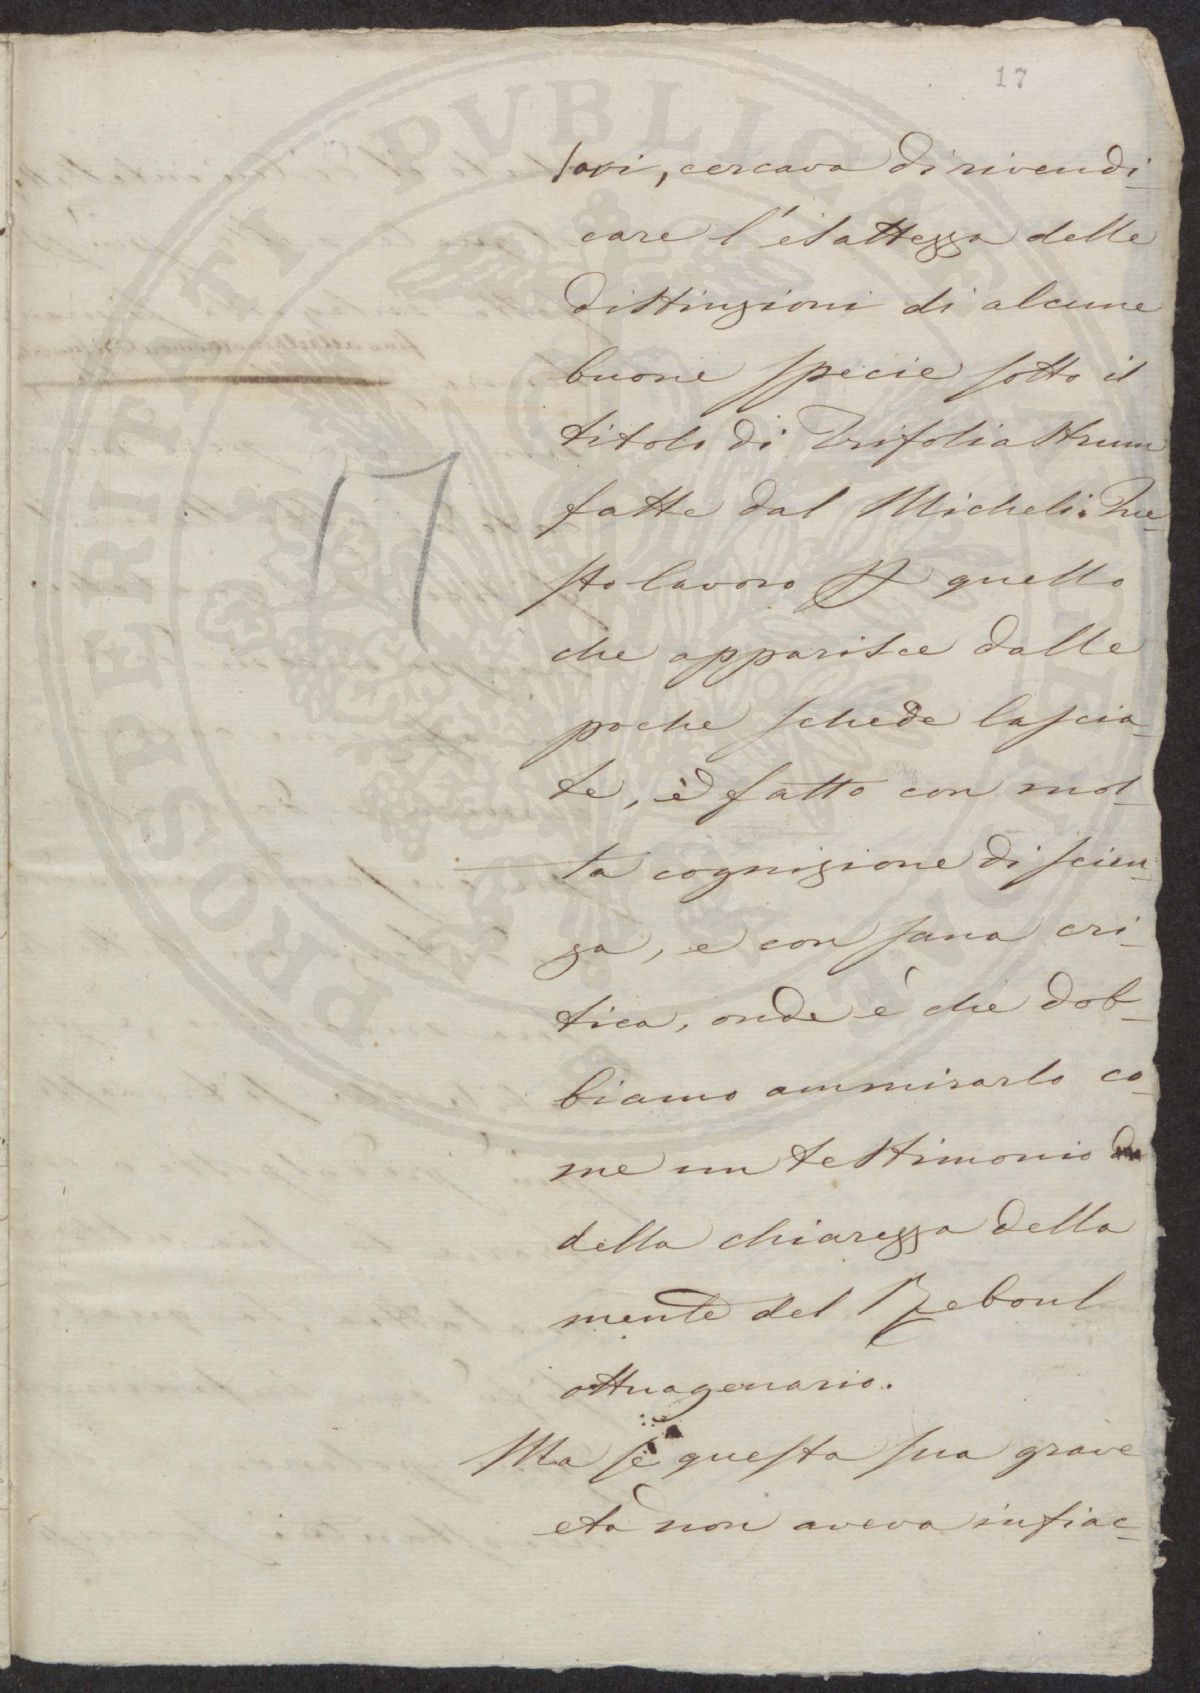 17
tori, cercava di rivendi-
care l'esattezza delle
distinzioni di alcune
buone specie sotto il
titolo di Trifoliastrum
fatte dal Micheli. Que-
sto lavoro quello
che apparisce dalle
poche schede lascia-
te, è fatto con mol-
ta cognizione di scien-
za, e con sana cri-
tica, onde è che dob-
biamo ammirarlo co-
me un testimonio
della chiarezza della
mente del Reboul
ottuagenario.
Ma se questa sua grave
età non aveva infiac-
17
PROSPERITATI PVBLICAE AVGENDAE